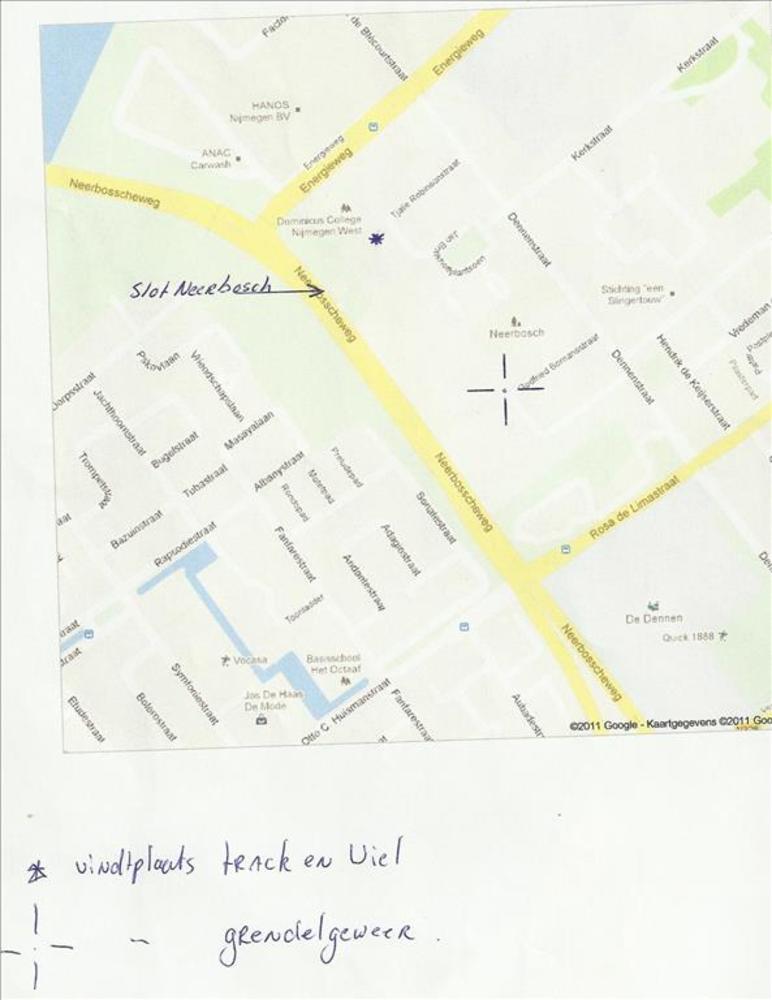 Facto
de Bhcourtstraat
Energieweg
Kerkstraat
HANOS
Nijmegen BV
Energieweg
Energieweg
Kerkstraat
ANAC
Carwash
Neerbosscheweg
Tjalie Robinsonstraat
Dominicus College
Nijmegen West
Dennenstraat
Slot Neerbosch
Neerbosscheweg
Stichting "een
Slingertouw"
Neerbosch
Vredeman
Godfried Bomansstraat
Dennenstraat
Hendrik de Keijserstraat
Pskovlaan
Vriendschapslaan
Dorpsstraat
Jachthoornstraat
Bugelstraat
Masayalaan
Tubastraat
Albanystraat
Preludepad
Motetpad
Rondopad
Neerbosscheweg
Sonatestraat
Rosa de Limastraat
aat
Bazuinstraat
Rapsodiestraat
Fanfarestraat
Adagiostraat
Andantestraat
Toonladder
De Dennen
Quick 1888
Neerbosscheweg
straat
straat
Vocasa
Basisschool
Het Octaaf
Symfoniestraat
Jos De Haas
De Mode
Etudestraat
Bolerostraat
Otto C. Huismanstraat
Fanfarestraa
Aubadestr
©2011 Google - Kaartgegevens ©2011 Goo
vindtplaats track en Wiel
- grendelgeweer.